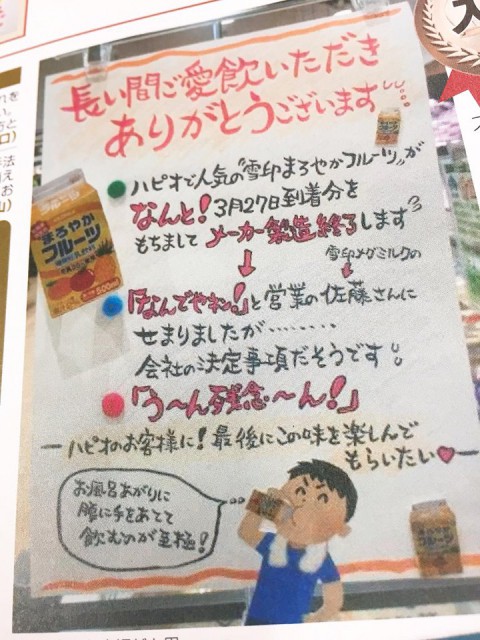 長い間ご愛飲いただき
ありがとうございます
ハピオで人気の"雪印まろやかフルーツ"が
なんと!3月27日到着分を
もちまして メーカー製造終了します
雪印メグミルクの
「なんでやネン!」と営業の佐藤さんに
せまりましたが………
会社の決定事項だそうです
「う〜ん残念〜ん!」
ハピオのお客様に!最後にこの味を楽しんで
もらいたい♥
お風呂あがりに
腰に手をあてて
飲むのが至極!
まろやか
フルーツ
500ml
まろやか
フルーツ